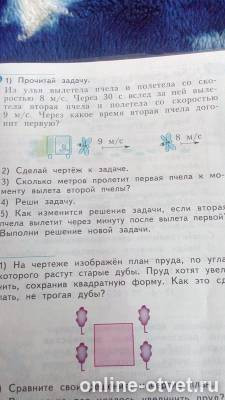 1) Прочитай задачу.
Из улья вылетела пчела и полетела со ско-
ростью 8 м/с. Через 30 с вслед за ней выле-
тела вторая пчела и полетела со скоростью
9 м/с. Через какое время вторая пчела дого-
нит первую?
9 м/с
8 м/с
2) Сделай чертёж к задаче.
3) Сколько метров пролетит первая пчела к мо-
менту вылета второй пчелы?
4) Реши задачу.
5) Как изменится решение задачи, если вторая
пчела вылетит через минуту после вылета первой?
Выполни решение новой задачи.
1) На чертеже изображён план пруда, по углам
которого растут старые дубы. Пруд хотят увели-
чить, сохранив квадратную форму. Как это сде-
лать, не трогая дубы?
online-otvet.ru
) Сравните свои